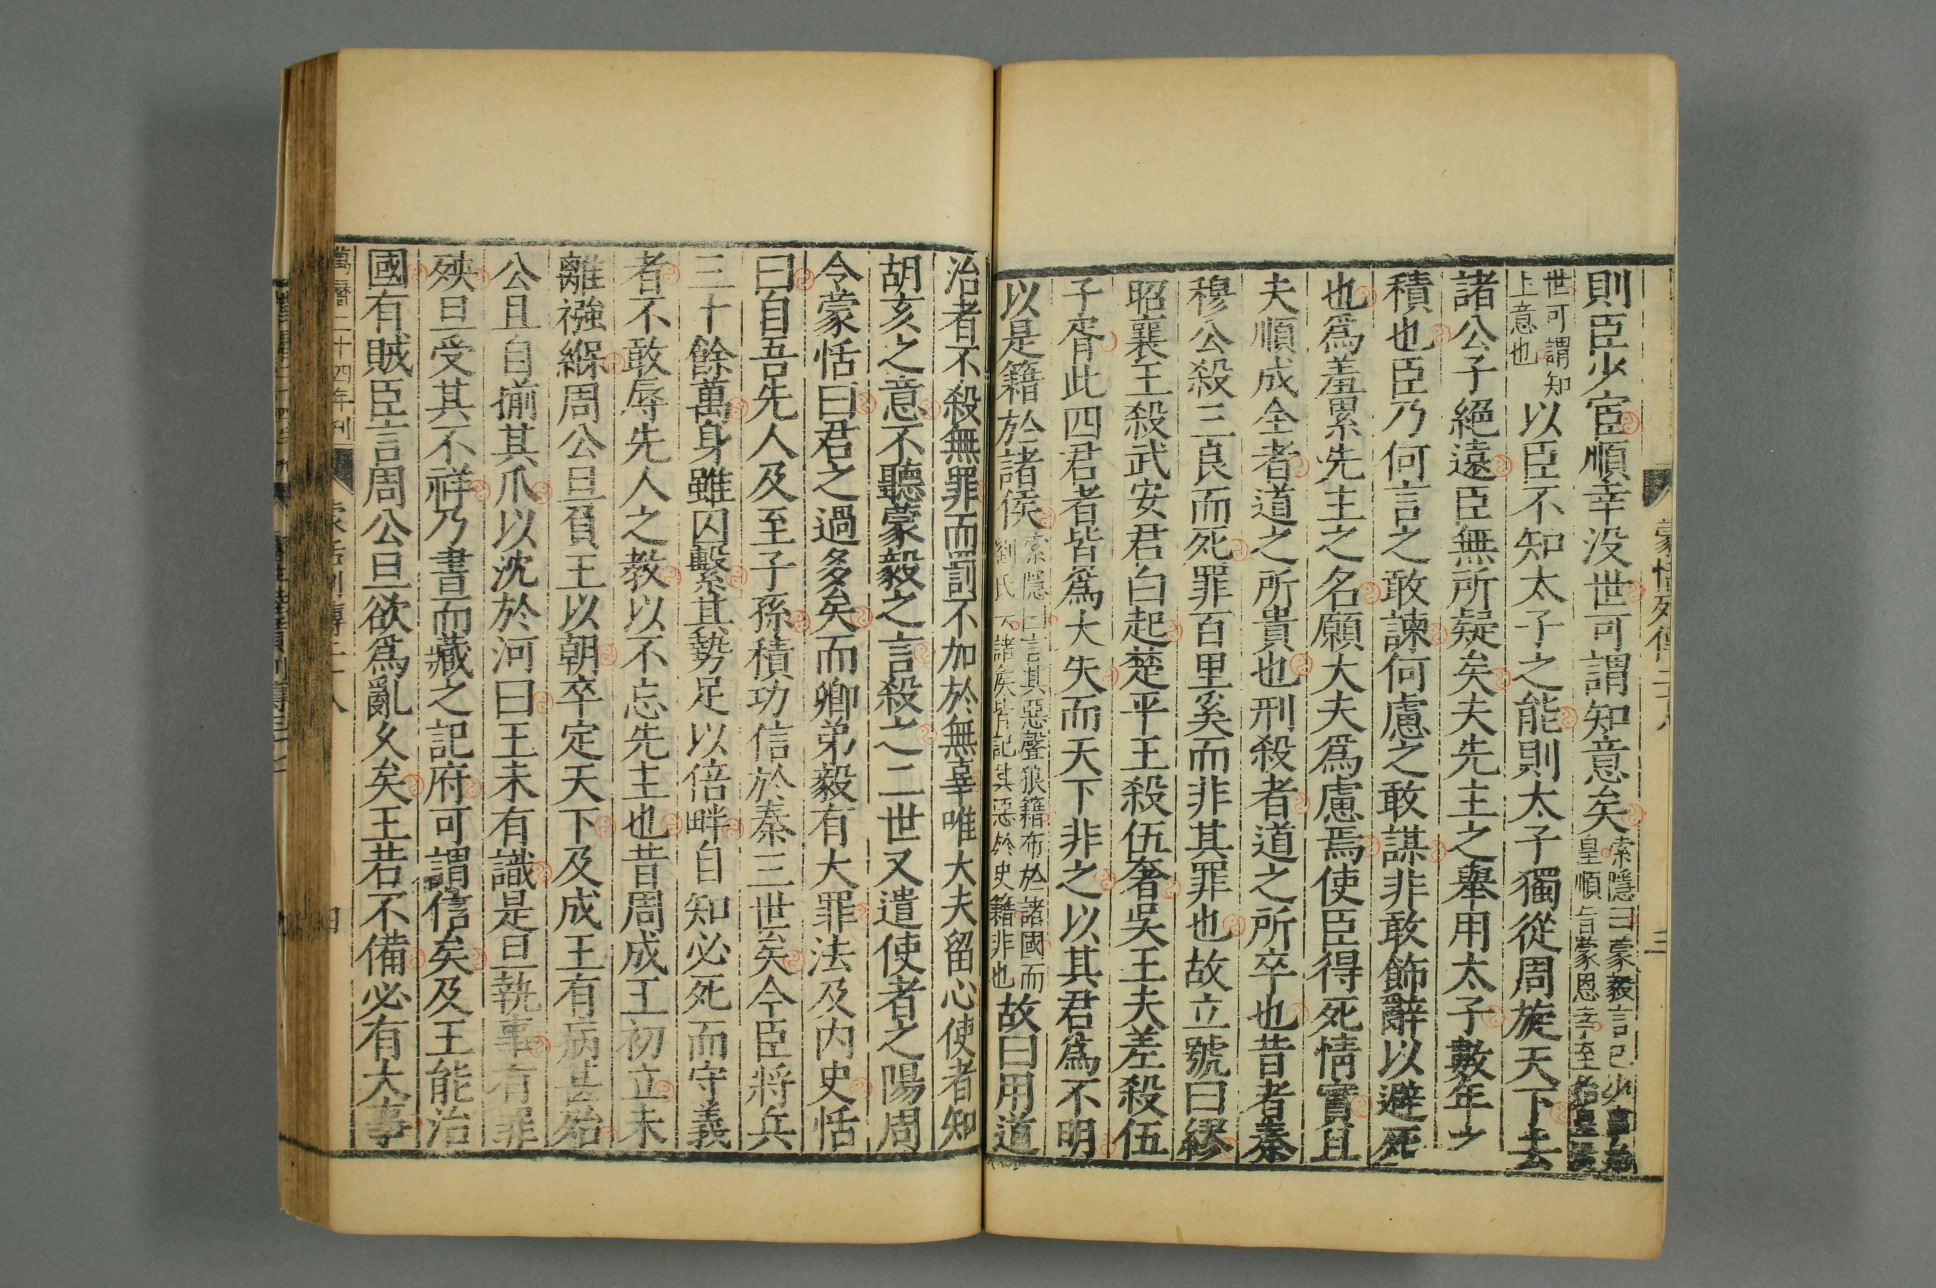 蒙恬列傳二十八
三
則臣少宦順幸没世可謂知意矣索隱曰蒙毅言己少事始皇順旨蒙恩幸至始皇没
世可謂知上意也以臣不知太子之能則太子獨從周旋天下去
諸公子絕遠臣無所疑矣夫先主之舉用太子數年之
積也臣乃何言之敢諫何慮之敢謀非敢飾辭以避死
也爲羞累先主之名願大夫爲慮焉使臣得死情實且
夫順成全者道之所貴也刑殺者道之所卒也昔者秦
穆公殺三良而死罪百里奚而非其罪也故立號曰繆
昭襄王殺武安君白起楚平王殺伍奢吳王夫差殺伍
子胥此四君者皆爲大失而天下非之以其君爲不明
以是籍於諸侯索隱曰言其惡聲狼籍布於諸國而劉氏云諸侯皆記其惡於史籍非也故曰用道
治者不殺無罪而罰不加於無辜唯大夫留心使者知
胡亥之意不聽蒙毅之言殺之二世又遣使者之陽周
令蒙恬曰君之過多矣而卿弟毅有大罪法及内史恬
曰自吾先人及至子孫積功信於秦三世矣今臣將兵
三十餘萬身雖囚繫其勢足以倍畔自知必死而守義
者不敢辱先人之教以不忘先主也昔周成王初立未
離襁緥周公旦負王以朝卒定天下及成王有病甚殆
公旦自揃其爪以沈於河曰王未有識是旦執事有罪
殃旦受其不祥乃書而藏之記府可謂信矣及王能治
國有賊臣言周公旦欲爲亂久矣王若不備必有大事
萬曆二十四年刊
蒙恬列傳二十八
四